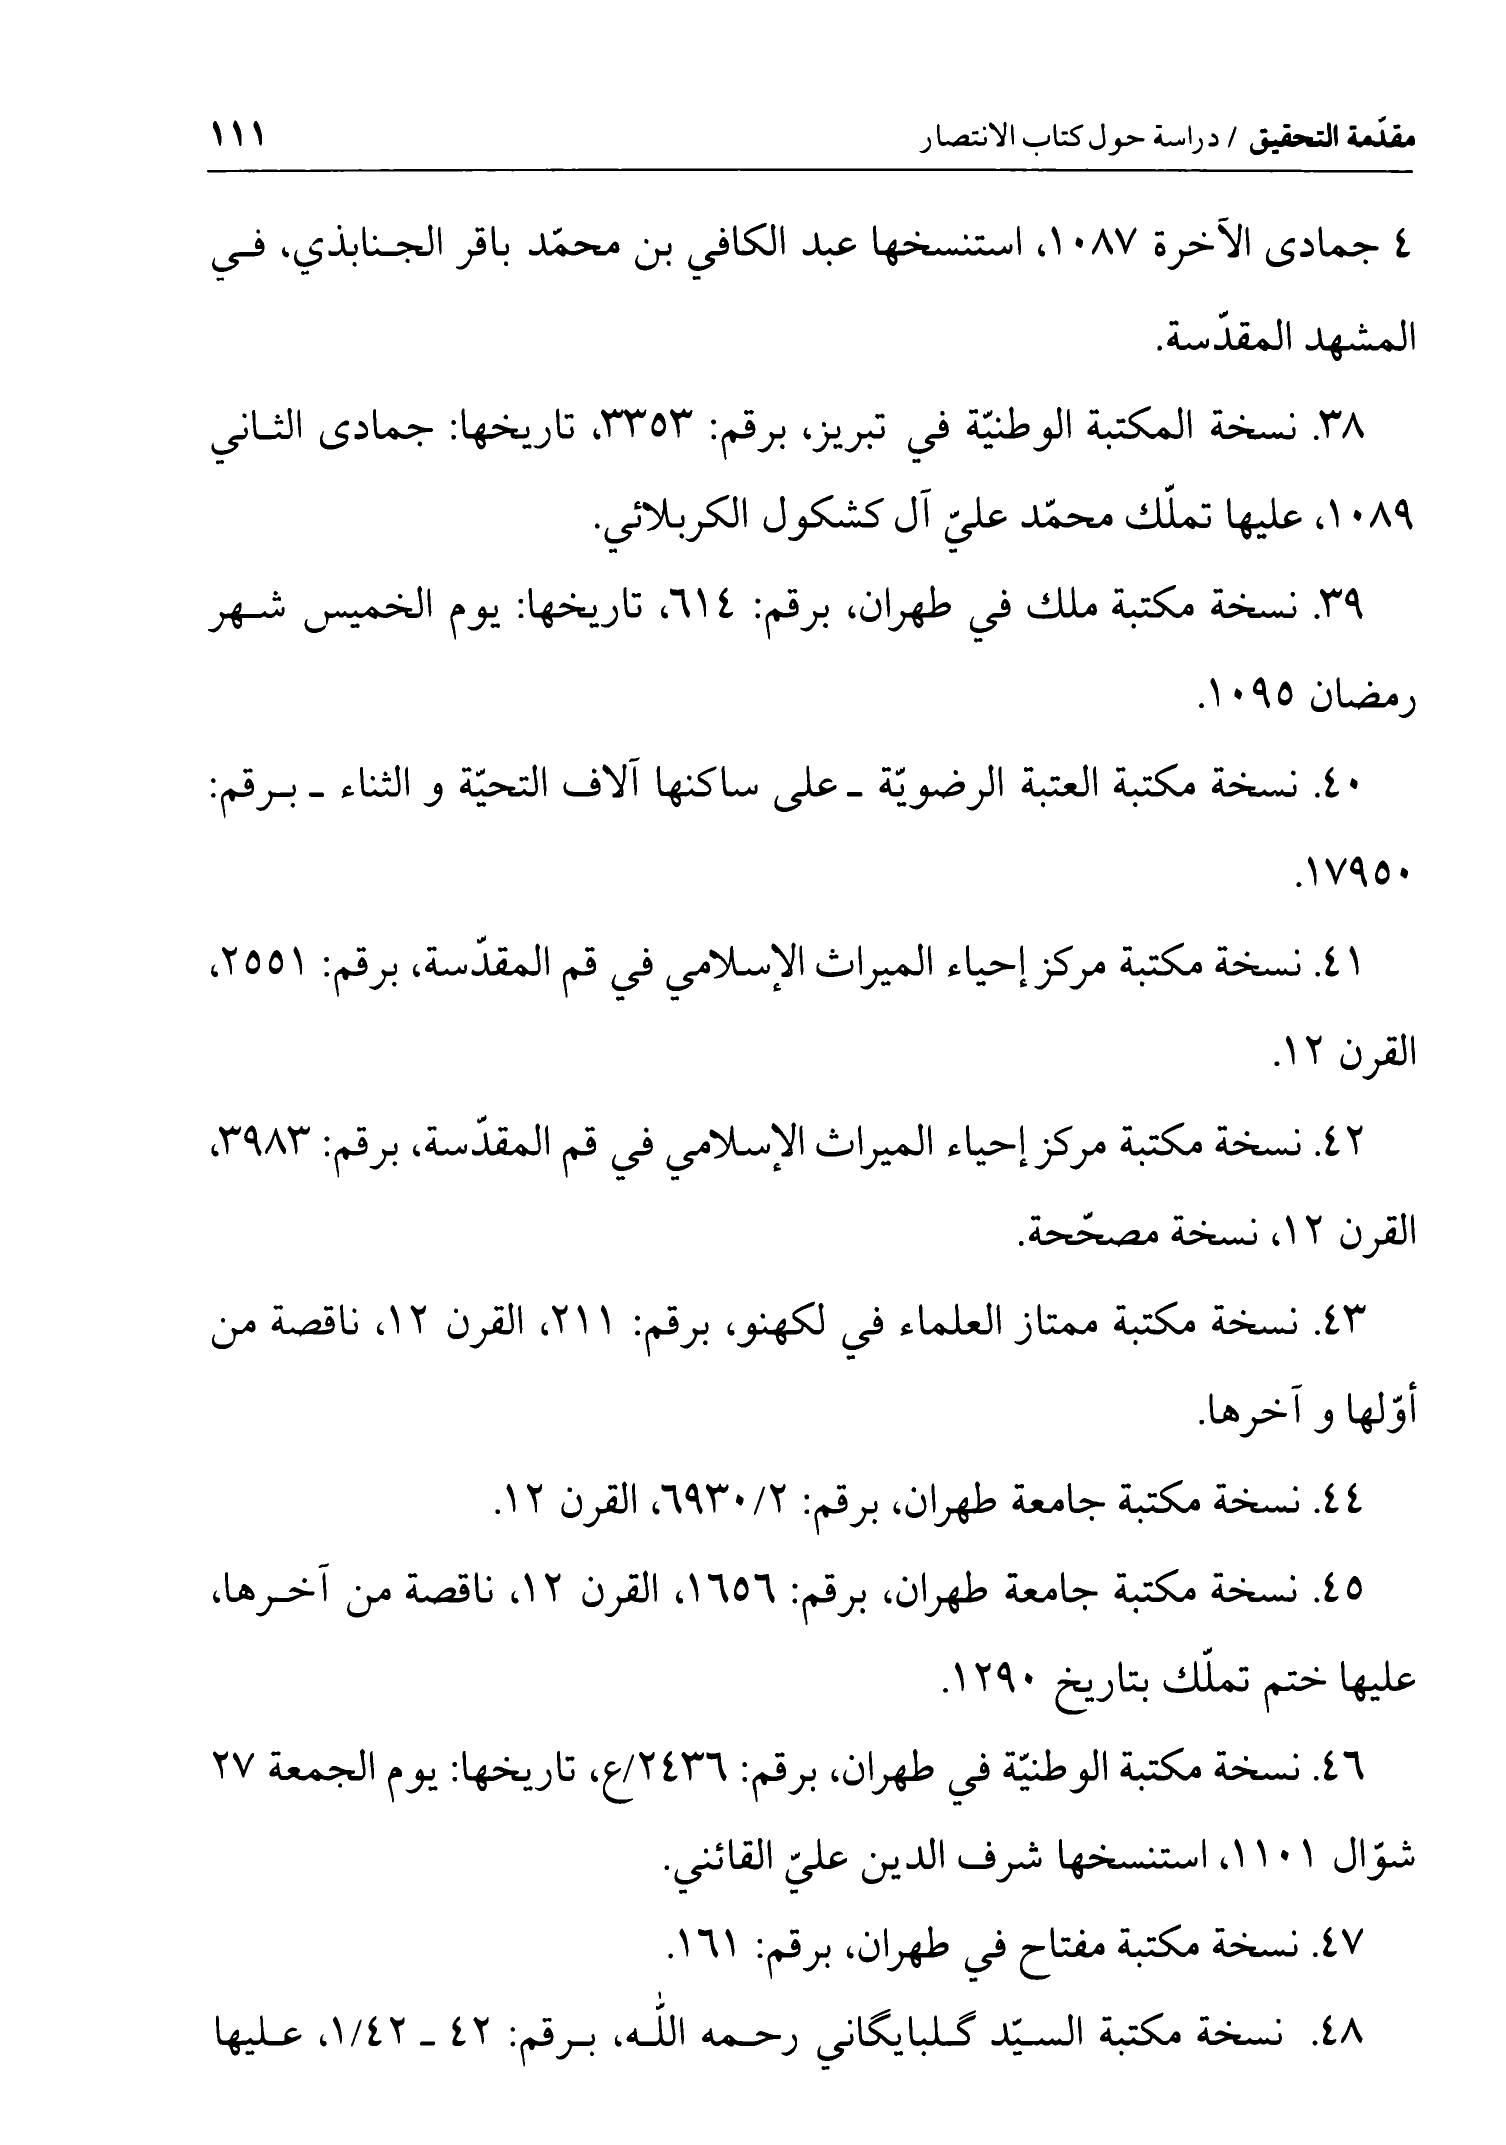 مقدّمة التحقيق / دراسة حول كتاب الانتصار ١١١
٤ جمادى الآخرة ١٠٨٧، استنسخها عبد الكافي بن محمّد باقر الجنابذي، في
المشهد المقدّسة.
٣٨. نسخة المكتبة الوطنيّة في تبريز، برقم: ٣٣٥٣، تاريخها: جمادى الثاني
١٠٨٩، عليها تملّك محمّد عليّ آل كشكول الكربلائي.
٣٩. نسخة مكتبة ملك في طهران، برقم: ٦١٤، تاريخها: يوم الخميس شهر
رمضان ١٠٩٥.
٤٠. نسخة مكتبة العتبة الرضويّة ـ على ساكنها آلاف التحيّة و الثناء ـ برقم:
١٧٩٥٠.
٤١. نسخة مكتبة مركز إحياء الميراث الإسلامي في قم المقدّسة، برقم: ٢٥٥١،
القرن ١٢.
٤٢. نسخة مكتبة مركز إحياء الميراث الإسلامي في قم المقدّسة، برقم: ٣٩٨٣،
القرن ١٢، نسخة مصحّحة.
٤٣. نسخة مكتبة ممتاز العلماء في لكهنو، برقم: ٢١١، القرن ١٢، ناقصة من
أوّلها و آخرها.
٤٤. نسخة مكتبة جامعة طهران، برقم: ٦٩٣٠/٢، القرن ١٢.
٤٥. نسخة مكتبة جامعة طهران، برقم: ١٦٥٦، القرن ١٢، ناقصة من آخرها،
عليها ختم تملّك بتاريخ ١٢٩٠.
٤٦. نسخة مكتبة الوطنيّة في طهران، برقم: ٢٤٣٦/ع، تاريخها: يوم الجمعة ٢٧
شوّال ١١٠١، استنسخها شرف الدين عليّ القائني.
٤٧. نسخة مكتبة مفتاح في طهران، برقم: ١٦١.
٤٨. نسخة مكتبة السيّد گلبايگاني رحمه اللّٰه، برقم: ٤٢ ـ ١/٤٢، عليها